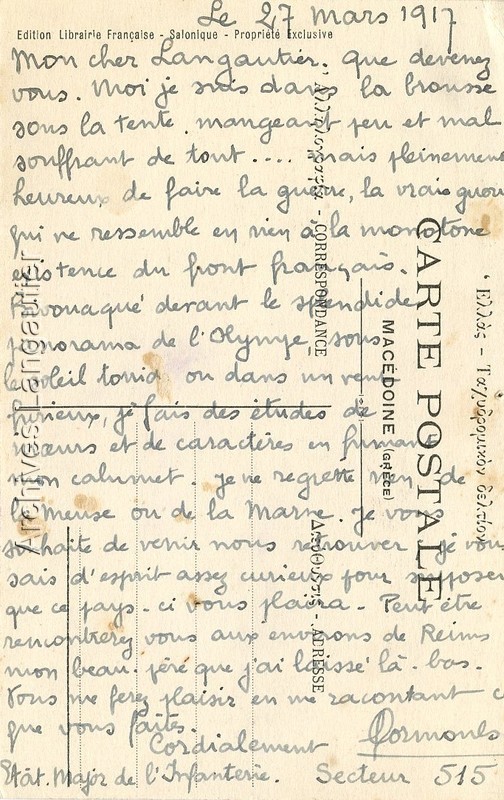 Le 27 mars 1917
Edition Librairie Française - Salonique - Propriété Exclusive
Mon cher Langautier. que devenez
vous. Moi je suis dans la brousse
sous la tente. mangeant peu et mal
souffrant de tout.... mais pleinement
heureux de faire la guerre, la vraie guerre
qui ne ressemble en rien à la monotone
existence du front français.
Bivouaqué devant le splendide
panorama de l'Olympe, sous
le soleil torride ou dans un vent
furieux, je fais des études de
mœurs et de caractères en fumant
mon calumet. je ne regrette rien de
la Meuse ou de la Marne. je vous
souhaite de venir nous retrouver. je vous
sais d'esprit assez curieux pour supposer
que ce pays-ci vous plaira. Peut être
rencontrerez vous aux environs de Reims
mon beau-père que j'ai laissé là-bas.
Vous me ferez plaisir en me racontant ce
que vous faites.
Cordialement
Etat. Major de l'Infanterie. Secteur 515
CARTE POSTALE
MACÉDOINE (GRÈCE)
Ἑλλάς - Ταχυδρομικὸν δελτίον
Ἀλληλογραφία - CORRESPONDANCE
Διεύθυνσις - ADRESSE
Archives Langautier